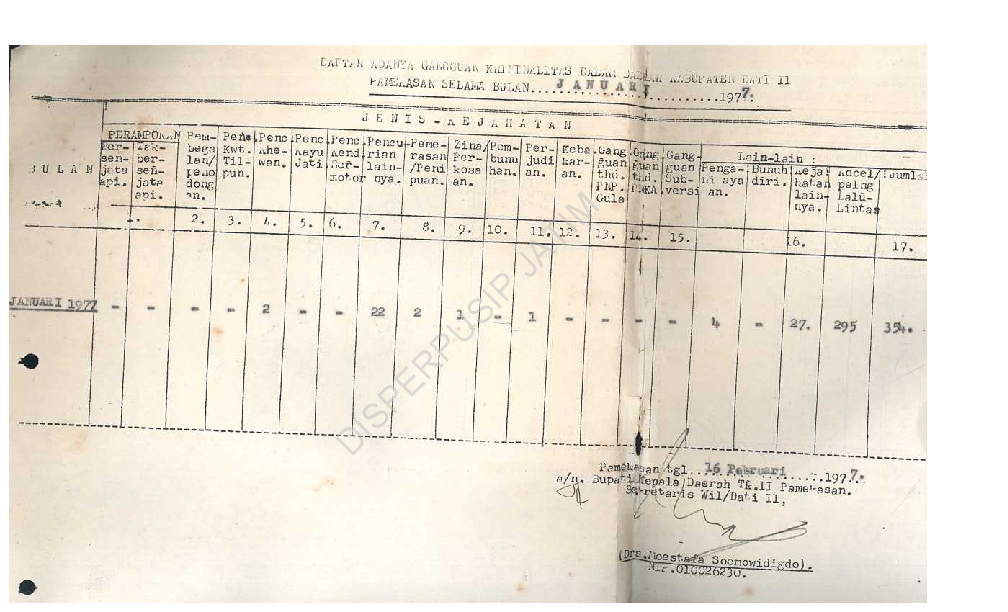 DAFTAR ADANYA GANGGUAN KRIMINALITAS DALAM DAERAH KABUPATEN DATI II
PAMEKASAN SELAMA BULAN....JANUARI..........1977.
JENIS-KEJAHATAN
BULAN
PERAMPOKAN
Ber-
sen-
jata
api.
Tak-
ber-
sen-
jata
api.
Pem-
bega
lan/
peno
dong
an.
Kwt.
Til-
pun.
Penc
.Khe-
wan.
Penc
Kayu
Jati
Penc
Kend
Ber-
motor
Pencu
rian
lain-
nya.
Peme-
rasan
/Peni
puan.
Zina/
Per-
kosa
an.
Pem-
bunu
han.
Per-
judi
an.
Keba
kar-
an.
Gang-
guan
thd.
PNP.
Gula
Gang
guan
thd.
PJKA.
Gang-
guan
Sub-
versi
Lain-lain :
Penga-
ni aya
an.
Bunuh
diri.
Keja
hatan
lain-
nya.
Kecel/
palng
Lalu-
Lintas
Jumlah
1. 2. 3. 4. 5. 6. 7. 8. 9. 10. 11. 12. 13. 14. 15. 16. 17.
JANUARI 1977 - - - - 2 - - 22 2 1 - 1 - - - - 4 - 27. 295 354.
DISPERPUSIP JATIM
Pamekasan tgl..16 Pebruari......1977.
a/n. Bupati Kepala Daerah Tk.II Pamekasan.
Sekretaris Wil/Dati II,
(Drs.Moestafa Soemowidigdo).
NIP.010026230.